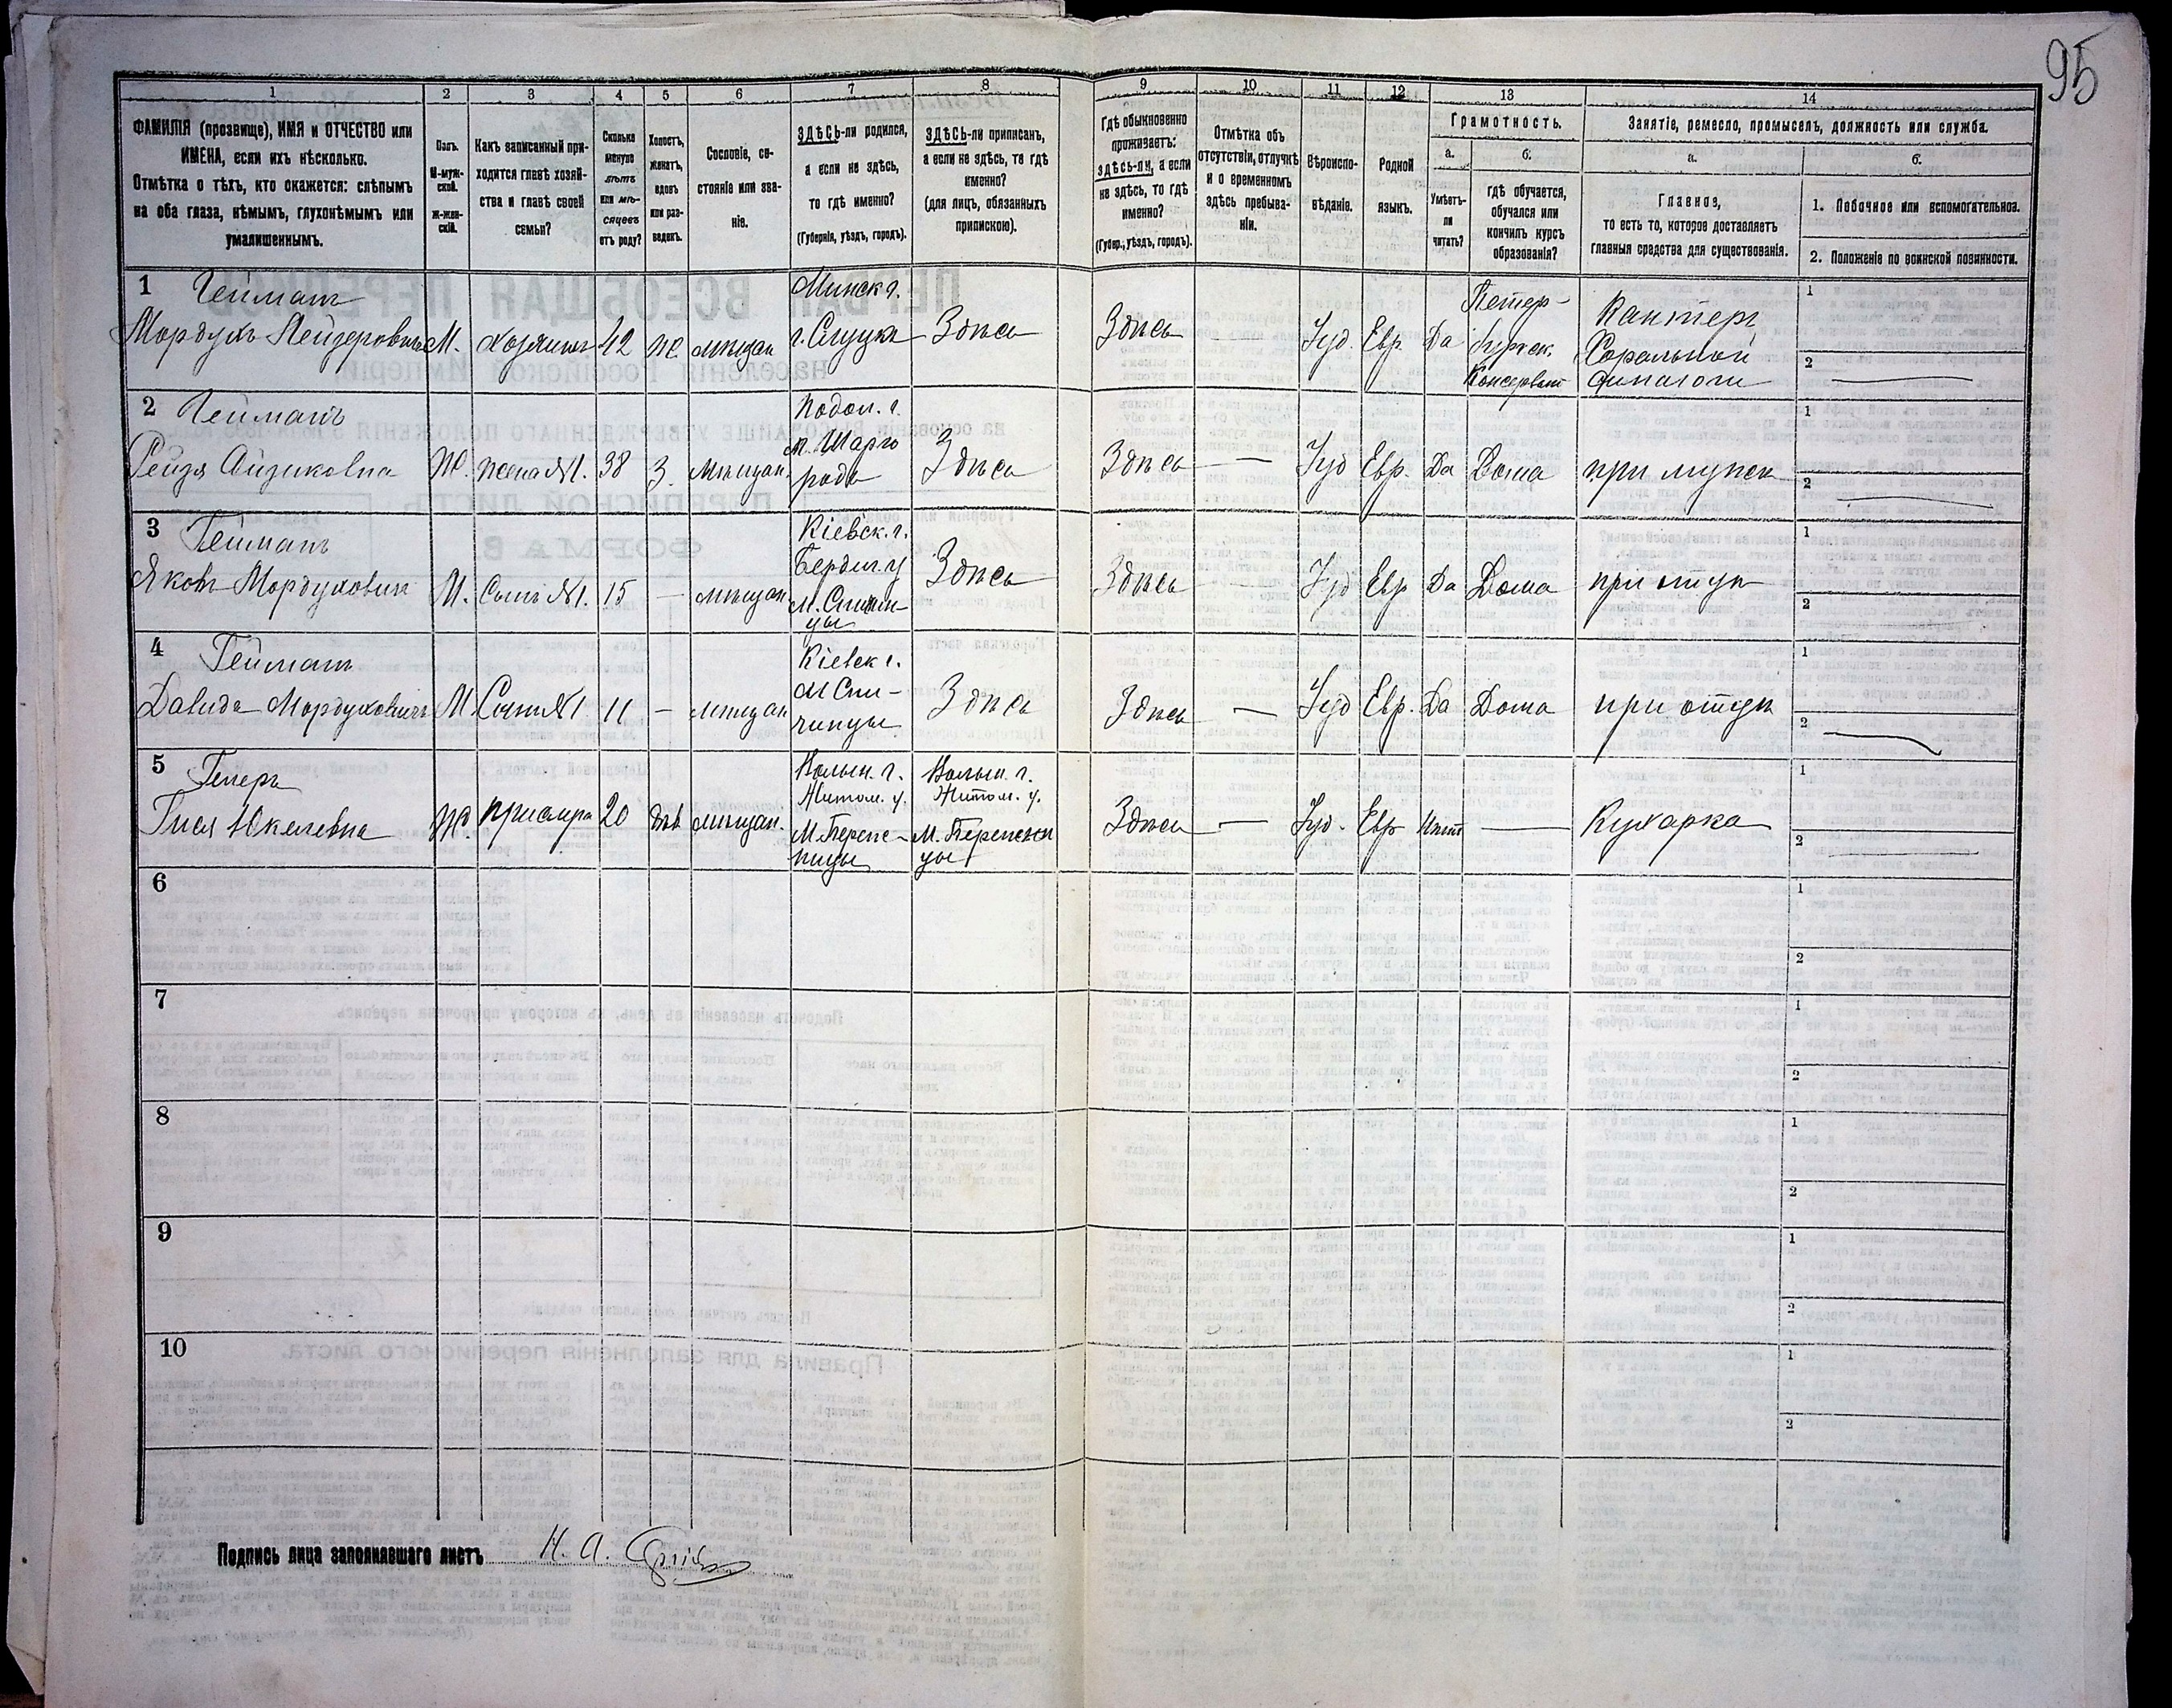 95
1 2 3 4 5 6 7 8 9 10 11 12 13 14
ФАМИЛІЯ (прозвище), ИМЯ и ОТЧЕСТВО или
ИМЕНА, если ихъ нѣсколько.
Отмѣтка о тѣхъ, кто окажется: слѣпымъ
на оба глаза, нѣмымъ, глухонѣмымъ или
умалишеннымъ.
Полъ.
М-муж-
ской.
ж-жен-
скій.
Какъ записанный при-
ходится главѣ хозяй-
ства и главѣ своей
семьи?
Сколько
минуло
лѣтъ
или мѣ-
сяцевъ
отъ роду?
Холостъ,
женатъ,
вдовъ
или раз-
веденъ.
Сословіе, со-
стояніе или зва-
ніе.
ЗДѢСЬ-ли родился,
а если не здѣсь,
то гдѣ именно?
(Губернія, уѣздъ, городъ).
ЗДѢСЬ-ли приписанъ,
а если не здѣсь, то гдѣ
именно?
(для лицъ, обязанныхъ
припискою).
Гдѣ обыкновенно
проживаетъ:
здѣсь-ли, а если
не здѣсь, то гдѣ
именно?
(Губер., уѣздъ, городъ).
Отмѣтка объ
отсутствіи, отлучкѣ
и о временномъ
здѣсь пребыва-
ніи.
Вѣроиспо-
вѣданіе.
Родной
языкъ.
Грамотность.
а.
Умѣетъ-
ли
читать?
б.
гдѣ обучается,
обучался или
кончилъ курсъ
образованія?
Занятіе, ремесло, промыселъ, должность или служба.
а.
Главное,
то есть то, которое доставляетъ
главныя средства для существованія.
б.
1. Побочное или вспомогательное.
2. Положеніе по воинской повинности.
1 Гейманъ
Мордухъ Лейзеровичъ
М.
хозяинъ
42
Ж.
мѣщан
Минск г.
г. Слуцкъ
Здѣсь
Здѣсь
Іуд.
Евр
Да
Петер-
бургск.
Консерват
Канторъ
Хоральной
синагоги
1
2
2 Гейманъ
Рейзя Айзиковна
Ж.
жена №1.
38
З.
мѣщан.
Подол. г.
м. Шарго
родъ
Здѣсь
Здѣсь
Іуд
Евр.
Да
Дома
при мужѣ
1
2
3 Гейманъ
Яковъ Мордуховичъ
М.
Сынъ №1.
15
мѣщан
Кіевск. г.
Бердич. у
Здѣсь
Здѣсь
Іуд
Евр
Да
Дома
при отцѣ
1
2
4 Гейманъ
Давидъ Мордуховичъ
М
Сынъ №1
11
мѣщан
Кіевск г.
м Спи-
чинцы
Здѣсь
Здѣсь
Іуд
Евр.
Да
Дома
при отцѣ
1
2
5
Гися Юкелевна
Ж.
прислуга
20
дѣв
мѣщан.
Волын. г.
Житом. у.
Волын. г.
Житом. у.
Здѣсь
Іуд.
Евр
Нѣтъ
Кухарка
1
2
6
1
2
7
1
2
8
1
2
9
1
2
10
1
2
Подпись лица заполнявшаго листъ